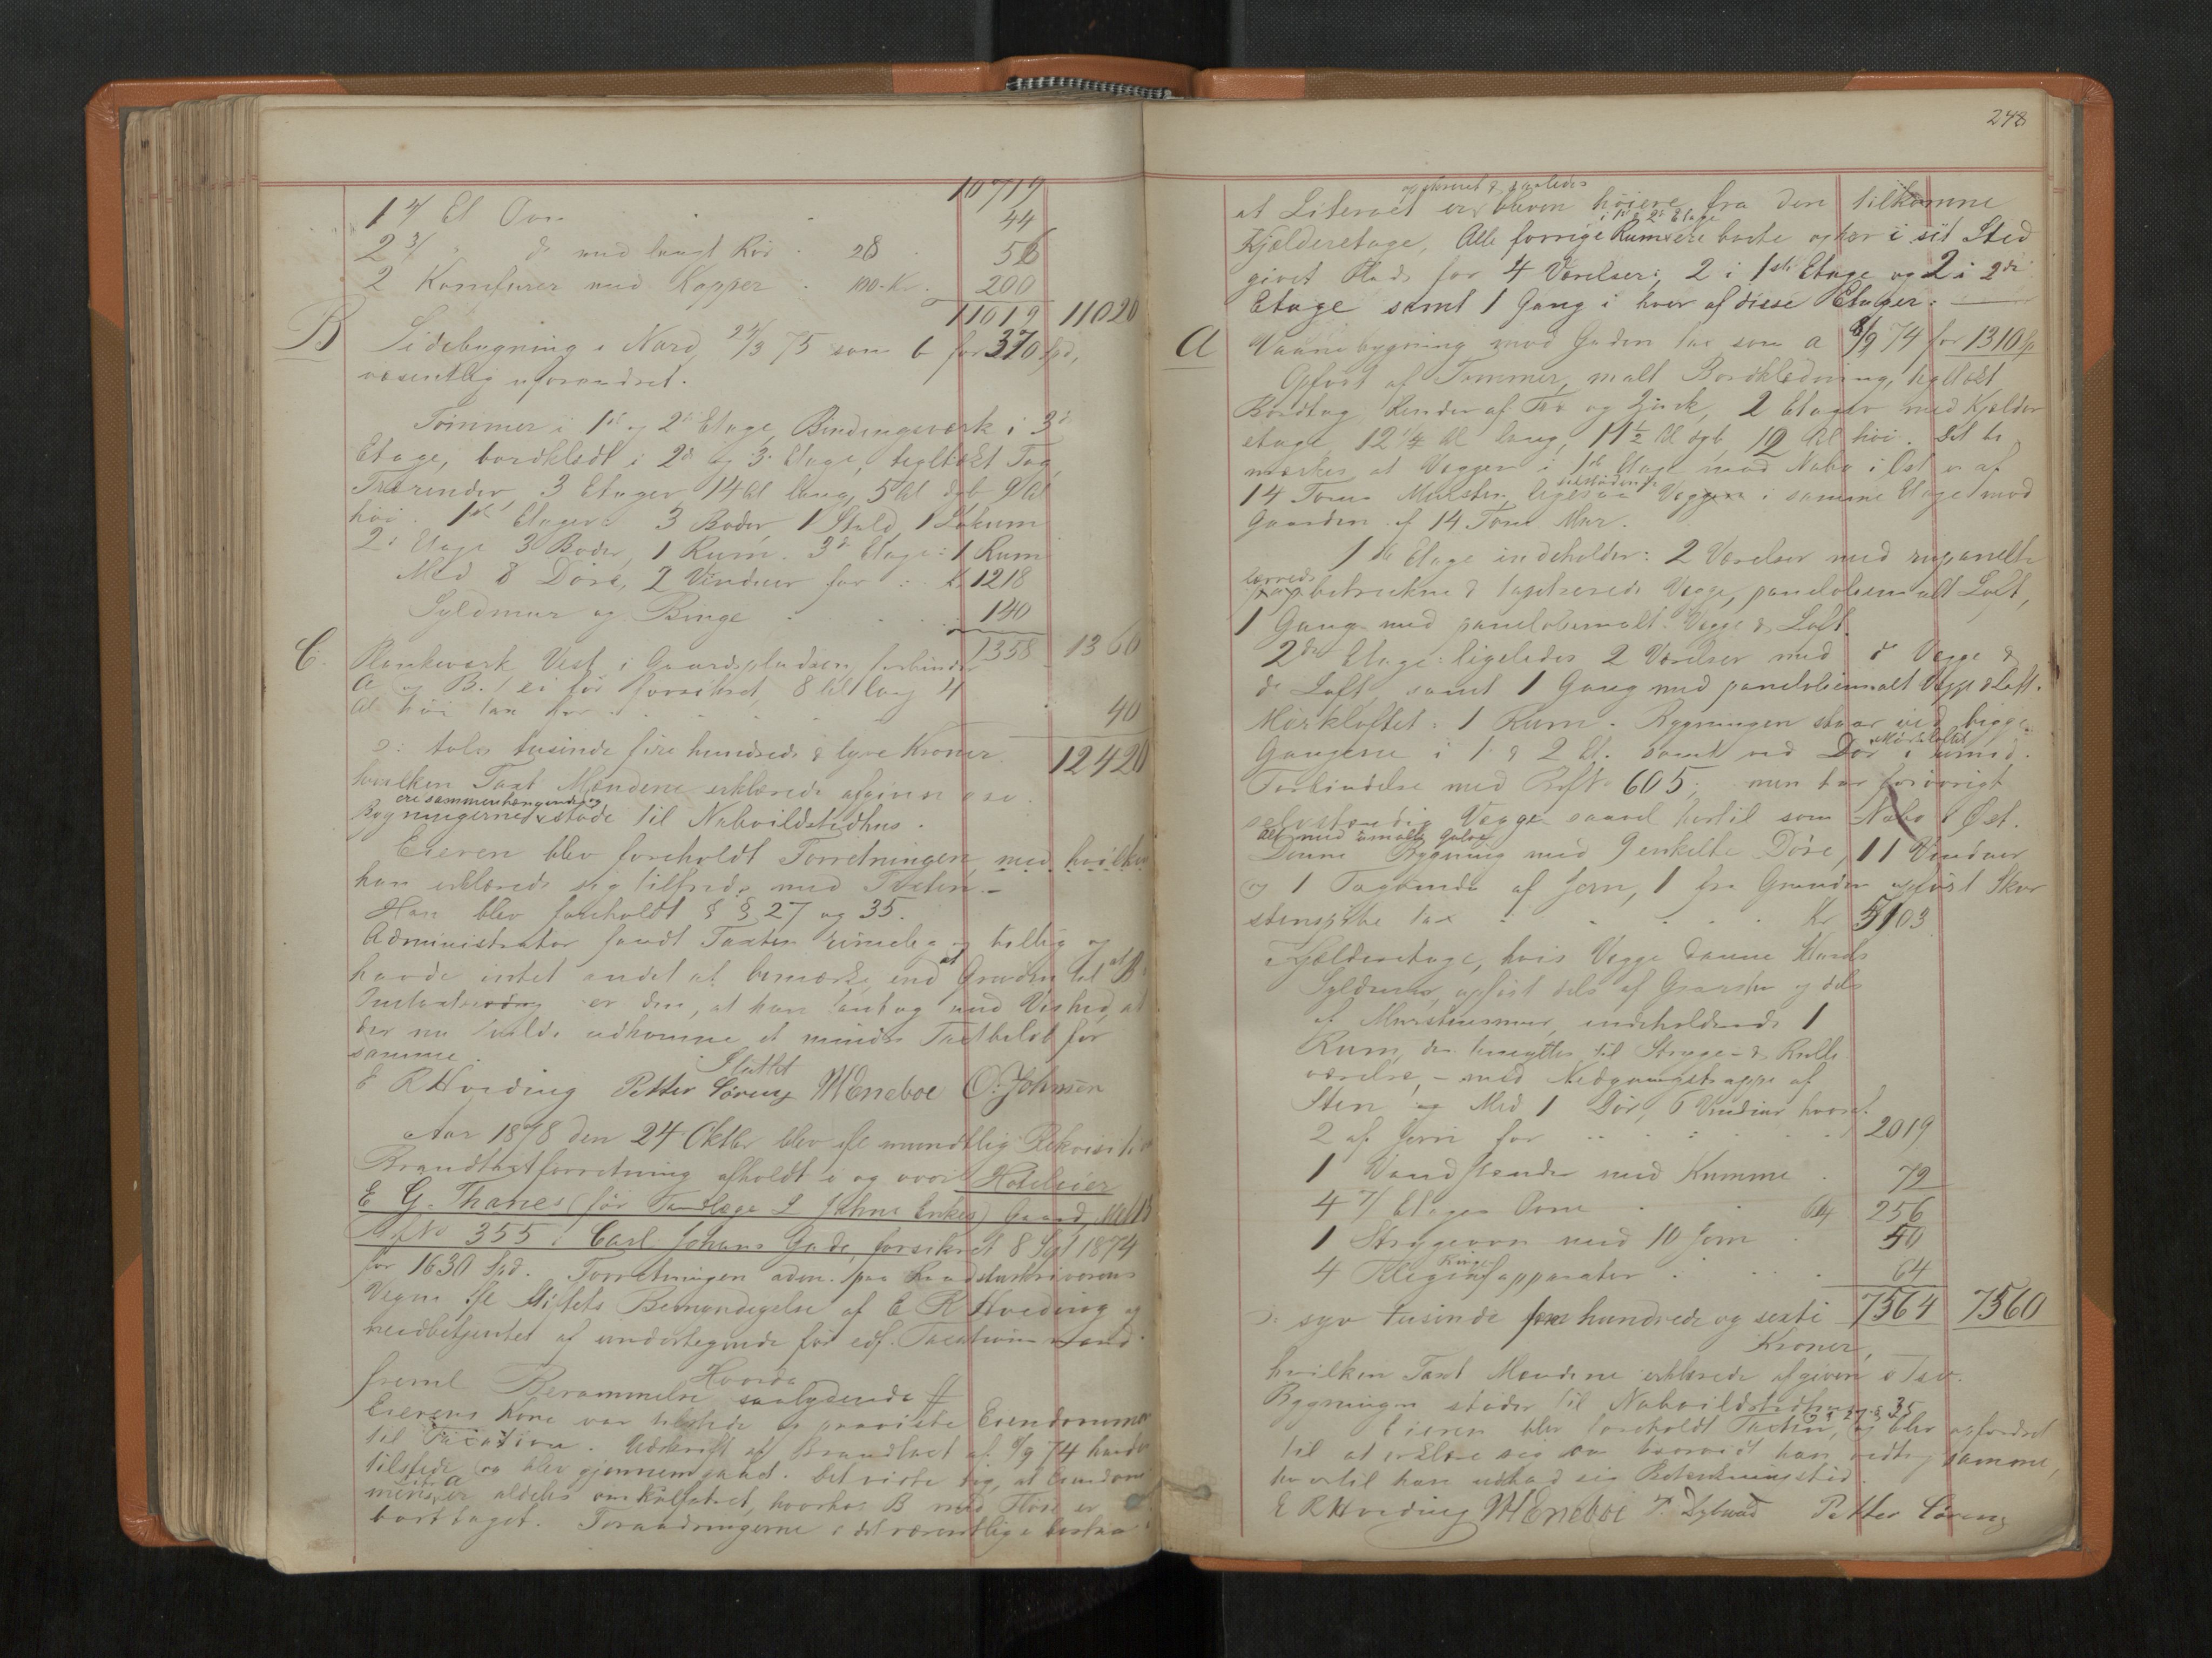 10719
1 4/ Et Ovn 44
2 3/ " do med langt Rør 28 56
2 Komfurer med Kapper 100 Kr. 200
11019 11020
B Sidebygning i Nord, 24/3 75 som b for 370 Spd,
væsentlig uforandret.
Tømmer i 1ste og 2den Etage, Bindingsværk i 3de
Etage, bordklædt i 2de og 3de Etage, teglsækt Tag,
Trærender, 3 Etager, 14 Al lang, 5 Al dyb 9 Al
høi. 1ste Etage: 3 Boder, 1 Stald, 1 Lokum
2den Etage 3 Boder, 1 Rum. 3de Etage: 1 Rum
Med 8 Døre, 2 Vinduer for Kr 1218
Syldmur og Binge 140
1358 1360
C. Plankeværk Vest i Gaardspladsen, forbinder
A og B. / ei før forsikret, 8 Al lang 4
Al høi tax for 40
ɔ: tolv tusinde fire hundrede & tyve Kroner. 12420
hvilken Taxt Mændene erklærede afgiven o s v.
ere sammenhængende og
Bygningerne støde til Naboildstedhus.
Eieren blev foreholdt Forretningen, med hvilken
han erklærede sig tilfreds med Taxten.
Han blev foreholdt § § 27 og 35.
Administrator fandt Taxten rimelig og billig og
havde intet andet at bemærke, end at Grunden til at B
er den, at han antog med Vished, at
der nu vilde udkomme et mindre Taxtbeløb for
samme.
Sluttet
E R Hveding Petter Søreng M Eneboe O. Johnsen
Aar 1878 den 24 Oktbr blev ifl mundtlig Rekvisition
Brandtaxtforretning afholdt i og over Hoteleier
E G. Thanes (før Tandlæge L Jahns Enkes) Gaard, Mtl B
No 355 i Carl Johans Gade, forsikret 8 Sept 1874
for 1630 Spd. Forretningen adm. paa Raadstueskriverens
Vegne ifl Stiftets Bemyndigelse af E R Hveding og
medbetjentes af undertegnede før edf. Taxationsmænd.
Hvorda
freml Berammelse saalydende #
Eierens Kone var tilstede og paaviste Eiendommen
til Taxation. Udskrift af Brandtaxt af 8/9 74 havdes
tilstede og blev gjennemgaaet. Det viste sig, at Eiendom
mens A er aldeles omkalfatret, hvorhos B med Flere er
borttaget. Forandringerne i det væsentlige bestaar i
248
opskruet & saaledes
at Literaet er bleven høiere fra den tilkomne
i 1ste & 2den Etage
Kjælderetage, Alle forrige Rum ere borte og har i sit Sted
givet Plads for 4 Værelser, 2 i 1ste Etage og 2 i 2den
Etage samt 1 Gang i hver af disse Etager.
A Vaanebygning mod Gaden tax som a 8/9 74 for 1310 Sp
Opført af Tømmer, malt Bordklædning, teglsækt
Bordtag, Render af Træ og Zink, 2 Etager med Kjælder
etage, 12 1/4 Al lang, 11 1/2 Al dyb, 10 Al høi. Det be
mærkes, at Væggen i 1ste Etage mod Nabo i Øst er af
14 Toms Mursten, ligesaa Væggen i samme Etage mod
Gaarden af 14 Toms Mur.
1ste Etage indeholder: 2 Værelser med rupanelte
lærreds
betrukne & tapetserede Vægge, paneloliemalt Loft,
1 Gang med paneloliemalt Vægge & Loft.
2den Etage: ligeledes 2 Værelser med do Vægge &
do Loft, samt 1 Gang med paneloliemalt Vægge & Loft.
Mørkloftet: 1 Rum. Bygningen staar ved begge
Gangene i 1 & 2 Et. samt ved Dør i
Forbindelse med 605; men har forøvrigt
selvstændig Vægge saavel hertil som Nabo i Øst.
Alt med umalte Gulve
Denne Bygning med 9 enkelte Døre, 11 Vinduer
og 1 Tagvindu af Jern, 1 fra Grunden opført Skor
stenspibe tax Kr 5103
Kjælderetage, hvis Vægge danne Husets
Syldmur, opført dels af Graasten og dels
af Murstensmur, indeholdende 1
Rum, der benyttes til Stryge- & Rulle
værelse, - med Nedgangstrappe af
Sten og Med 1 Dør, 6 Vinduer hvoraf
2 af Jern for 2019
1 Vandstender med Kumme 72
4 7/ Etages Ovne 64 256
1 Strygeovn med 10 Jern 50
Ringe
4 apparater 64
ɔ: syv tusinde fem hundrede og sexti 7564 7560
Kroner,
hvilken Taxt Mændene erklærede afgiven o s v.
Bygningen støder til Naboildstedhus
§ § 27 & 35
Eieren blev foreholdt Taxten, og blev opfordret
til at erklære sig om hvorvidt han vedtog samme,
hvortil han udbad sig Betænkningstid.
E R Hveding M Eneboe Petter Søreng